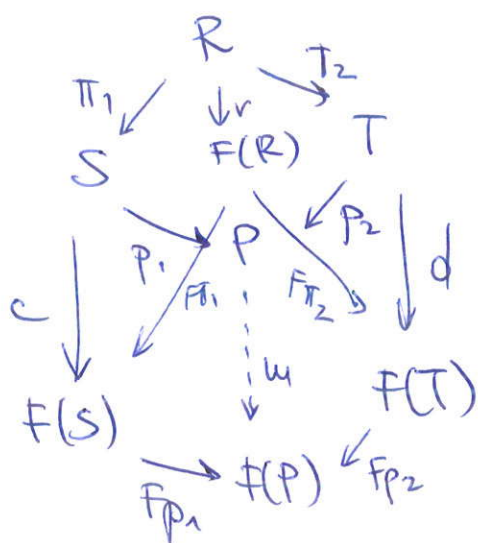 R
π₁ r π₂
S F(R) T
p₁ P p₂
c Fπ₁ Fπ₂ d
m
F(S) F(T)
Fp₁ F(P) Fp₂